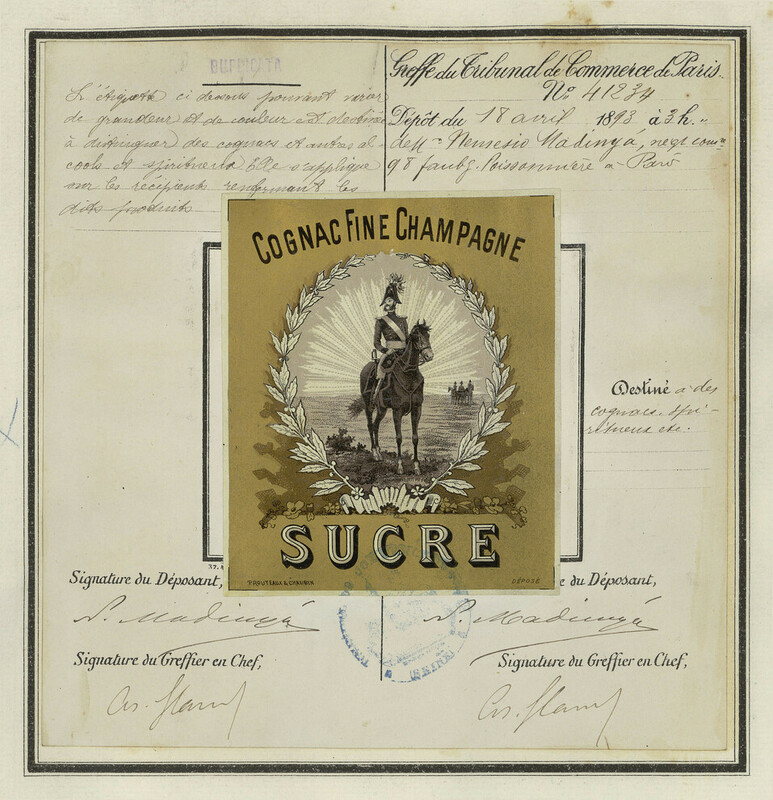 DUPLICATA
L'étiquette ci dessous pouvant varier
de grandeur et de couleur est destinée
à distinguer des cognacs et autres al-
cools et spiritueux Elle s'applique
sur les récipients renfermant les
dits produits
Greffe du Tribunal de Commerce de Paris.
No. 41234
Dépôt du 18 avril 1893 à 3 h.
de Mr. Nemesio Madinyá, négt comre
98 faubg. Poissonnière à Paris
COGNAC FINE CHAMPAGNE
SUCRE
DÉPOSÉ
Destiné à des
cognacs, spi-
ritueux etc.
Signature du Déposant,
N. Madinyá
Signature du Greffier en Chef,
e du Déposant,
N. Madinyá
Signature du Greffier en Chef,